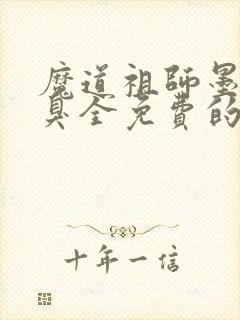 魔道祖师墨
臭全免费的
十年一信